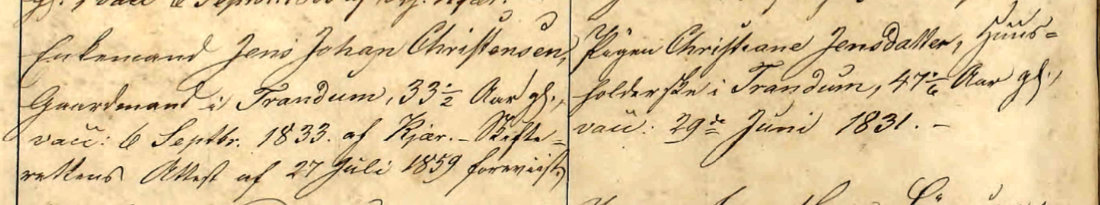 Enkemand Jens Johan Christensen,
Gaardmand i Trandum, 33 1/2 Aar gl.,
vacc: 6 Septbr. 1833. af Kjær. – Skifte-
rettens Attest af 27 Juli 1859 foreviist,
Pigen Christiane Jensdatter, Huus-
holderske i Trandum, 47 1/6 Aar gl.,
vacc: 29de Juni 1831. –